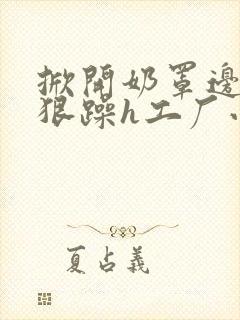 掀開奶罩邊
狠躁h工厂
夏占義